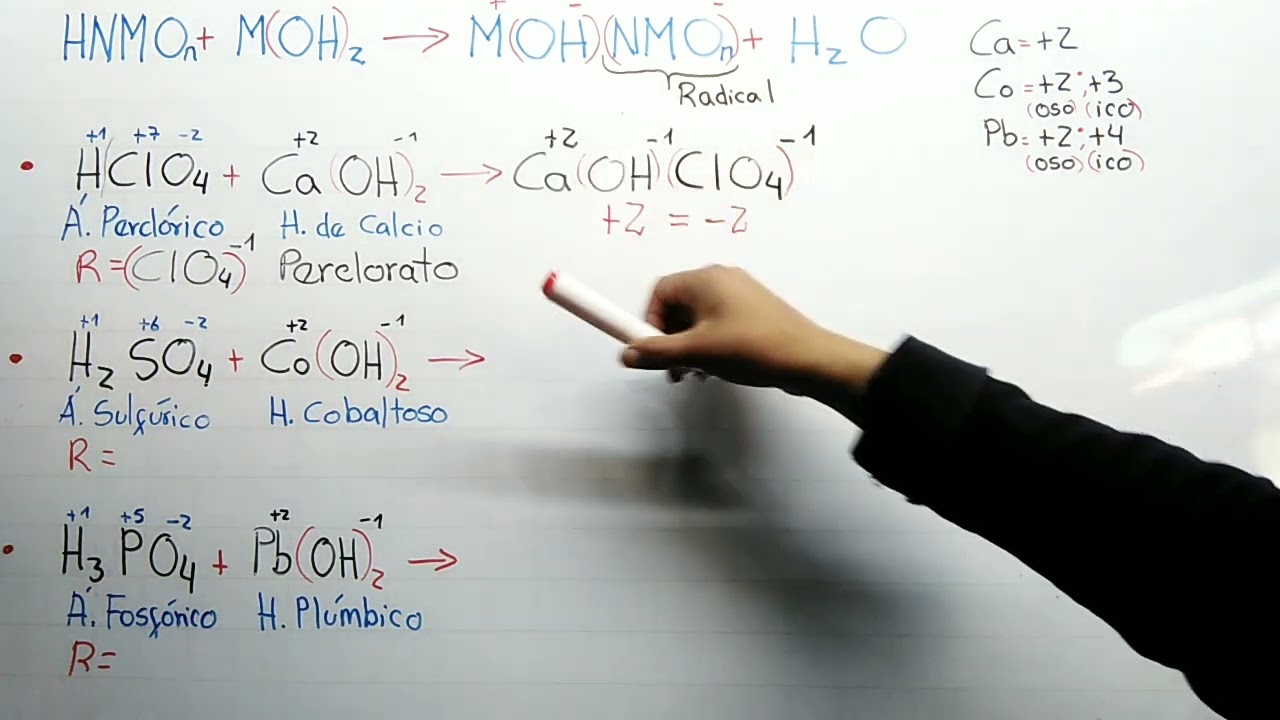 HNMOₙ + M(OH)₂ → M⁺(OH)⁻(NMOₙ)⁻ + H₂O
Radical
Ca = +2
Co = +2 ; +3
(oso) (ico)
Pb = +2 ; +4
(oso) (ico)
+1 +7 -2 +2 -1 +2 -1 -1
• HClO₄ + Ca(OH)₂ → Ca(OH)(ClO₄)
Á. Perclórico H. de Calcio
+2 = -2
R = (ClO₄)⁻¹ Perclorato
+1 +6 -2 +2 -1
• H₂SO₄ + Co(OH)₂ →
Á. Sulfúrico H. Cobaltoso
R =
+1 +5 -2 +2 -1
• H₃PO₄ + Pb(OH)₂ →
Á. Fosfórico H. Plúmbico
R =